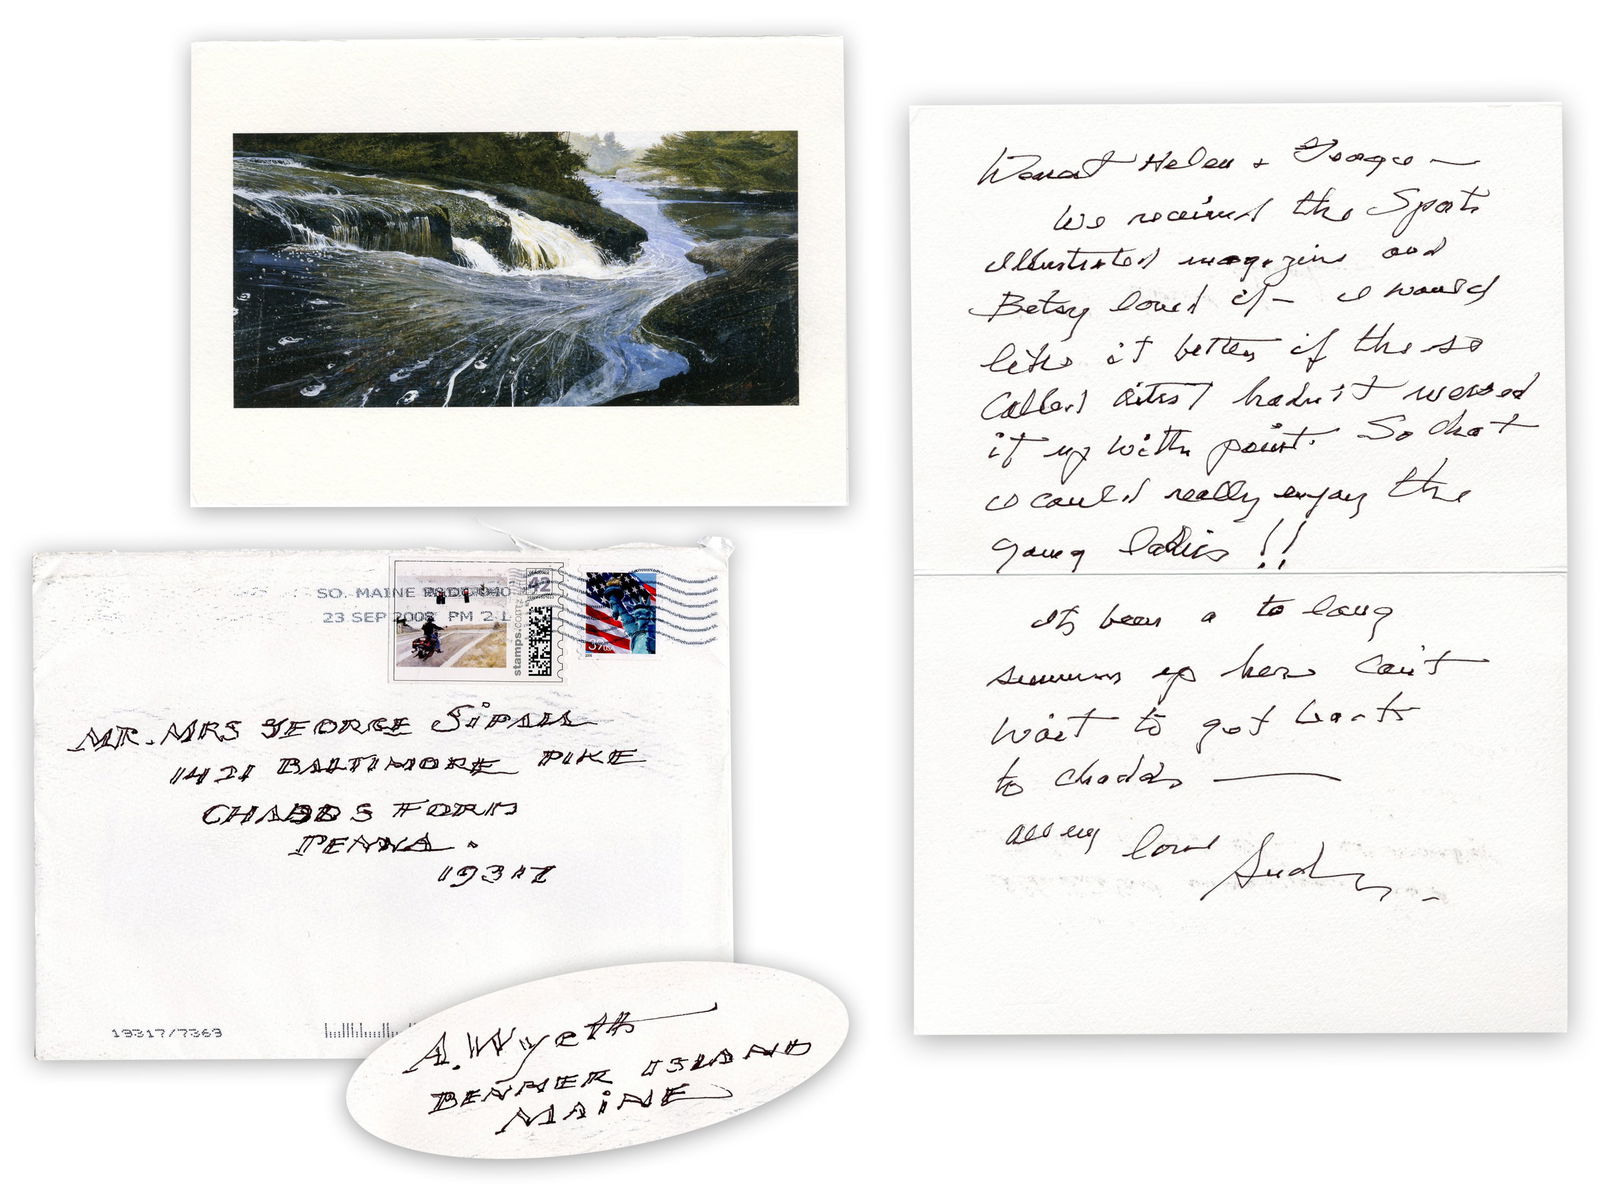 SO. MAINE P&DC 040
23 SEP 2008 PM 2 L
42
stamps.com
MR. MRS GEORGE SIPALA
1421 BALTIMORE PIKE
CHADDS FORD
PENNA.
19317
19317/7369
A. Wyeth
BENNER ISLAND
MAINE
Dearest Helen + George —
We received the Sports
Illustrated magazine and
Betsy loved it — I would
like it better if the so
called artist hadn't messed
it up with paint. So that
I could really enjoy the
young ladies!!
It's been a to long
summer up here can't
wait to get back
to chadds —
all my love Andy.